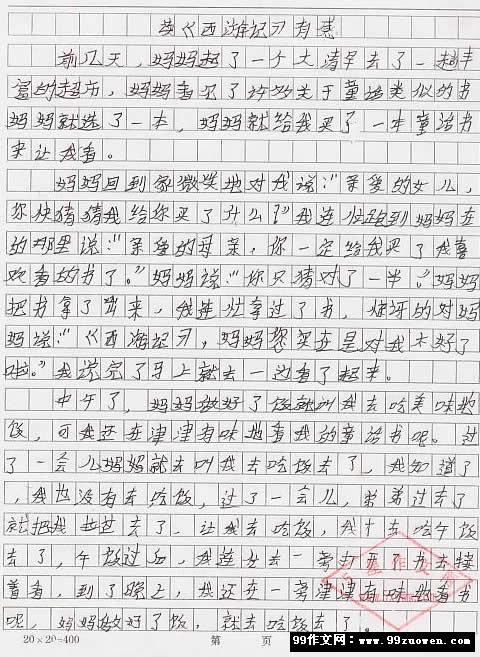 读《西游记》有感
前几天，妈妈起了一个大清早去了一趟丰
富的超市，妈妈看见了许多关于童话类似的书
妈妈就选了一本，妈妈就给我买了一本童话书
来让我看。
妈妈回到家微笑地对我说：“亲爱的女儿，
你快猜猜我给你买了什么？”我连忙跑到妈妈在
的那里说：“亲爱的母亲，你一定给我买了我喜
欢看的书了。”妈妈说：“你只猜对了一半。”妈妈
把书拿了出来，我连忙拿过了书，惊讶的对妈
妈说：“《西游记》，妈妈您实在是对我太好了
啦。”我说完了马上就去一边看了起来。
中午了，妈妈做好了饭就叫我去吃美味的
饭，可我还在津津有味地看我的童话书呢。过
了一会儿妈妈就去叫我去吃饭去了，我知道了
，我也没有去吃饭，过了一会儿，弟弟过去了
就把我过去了，让我去吃饭，我才去吃午饭
去了，午饭过后，我连忙去一旁了书去接
着看，到了晚上，我还在一旁津津有味地看书
呢，妈妈做好了饭，就去吃饭去了。
20×20=400 第 页
99作文网：www.99zuowen.com